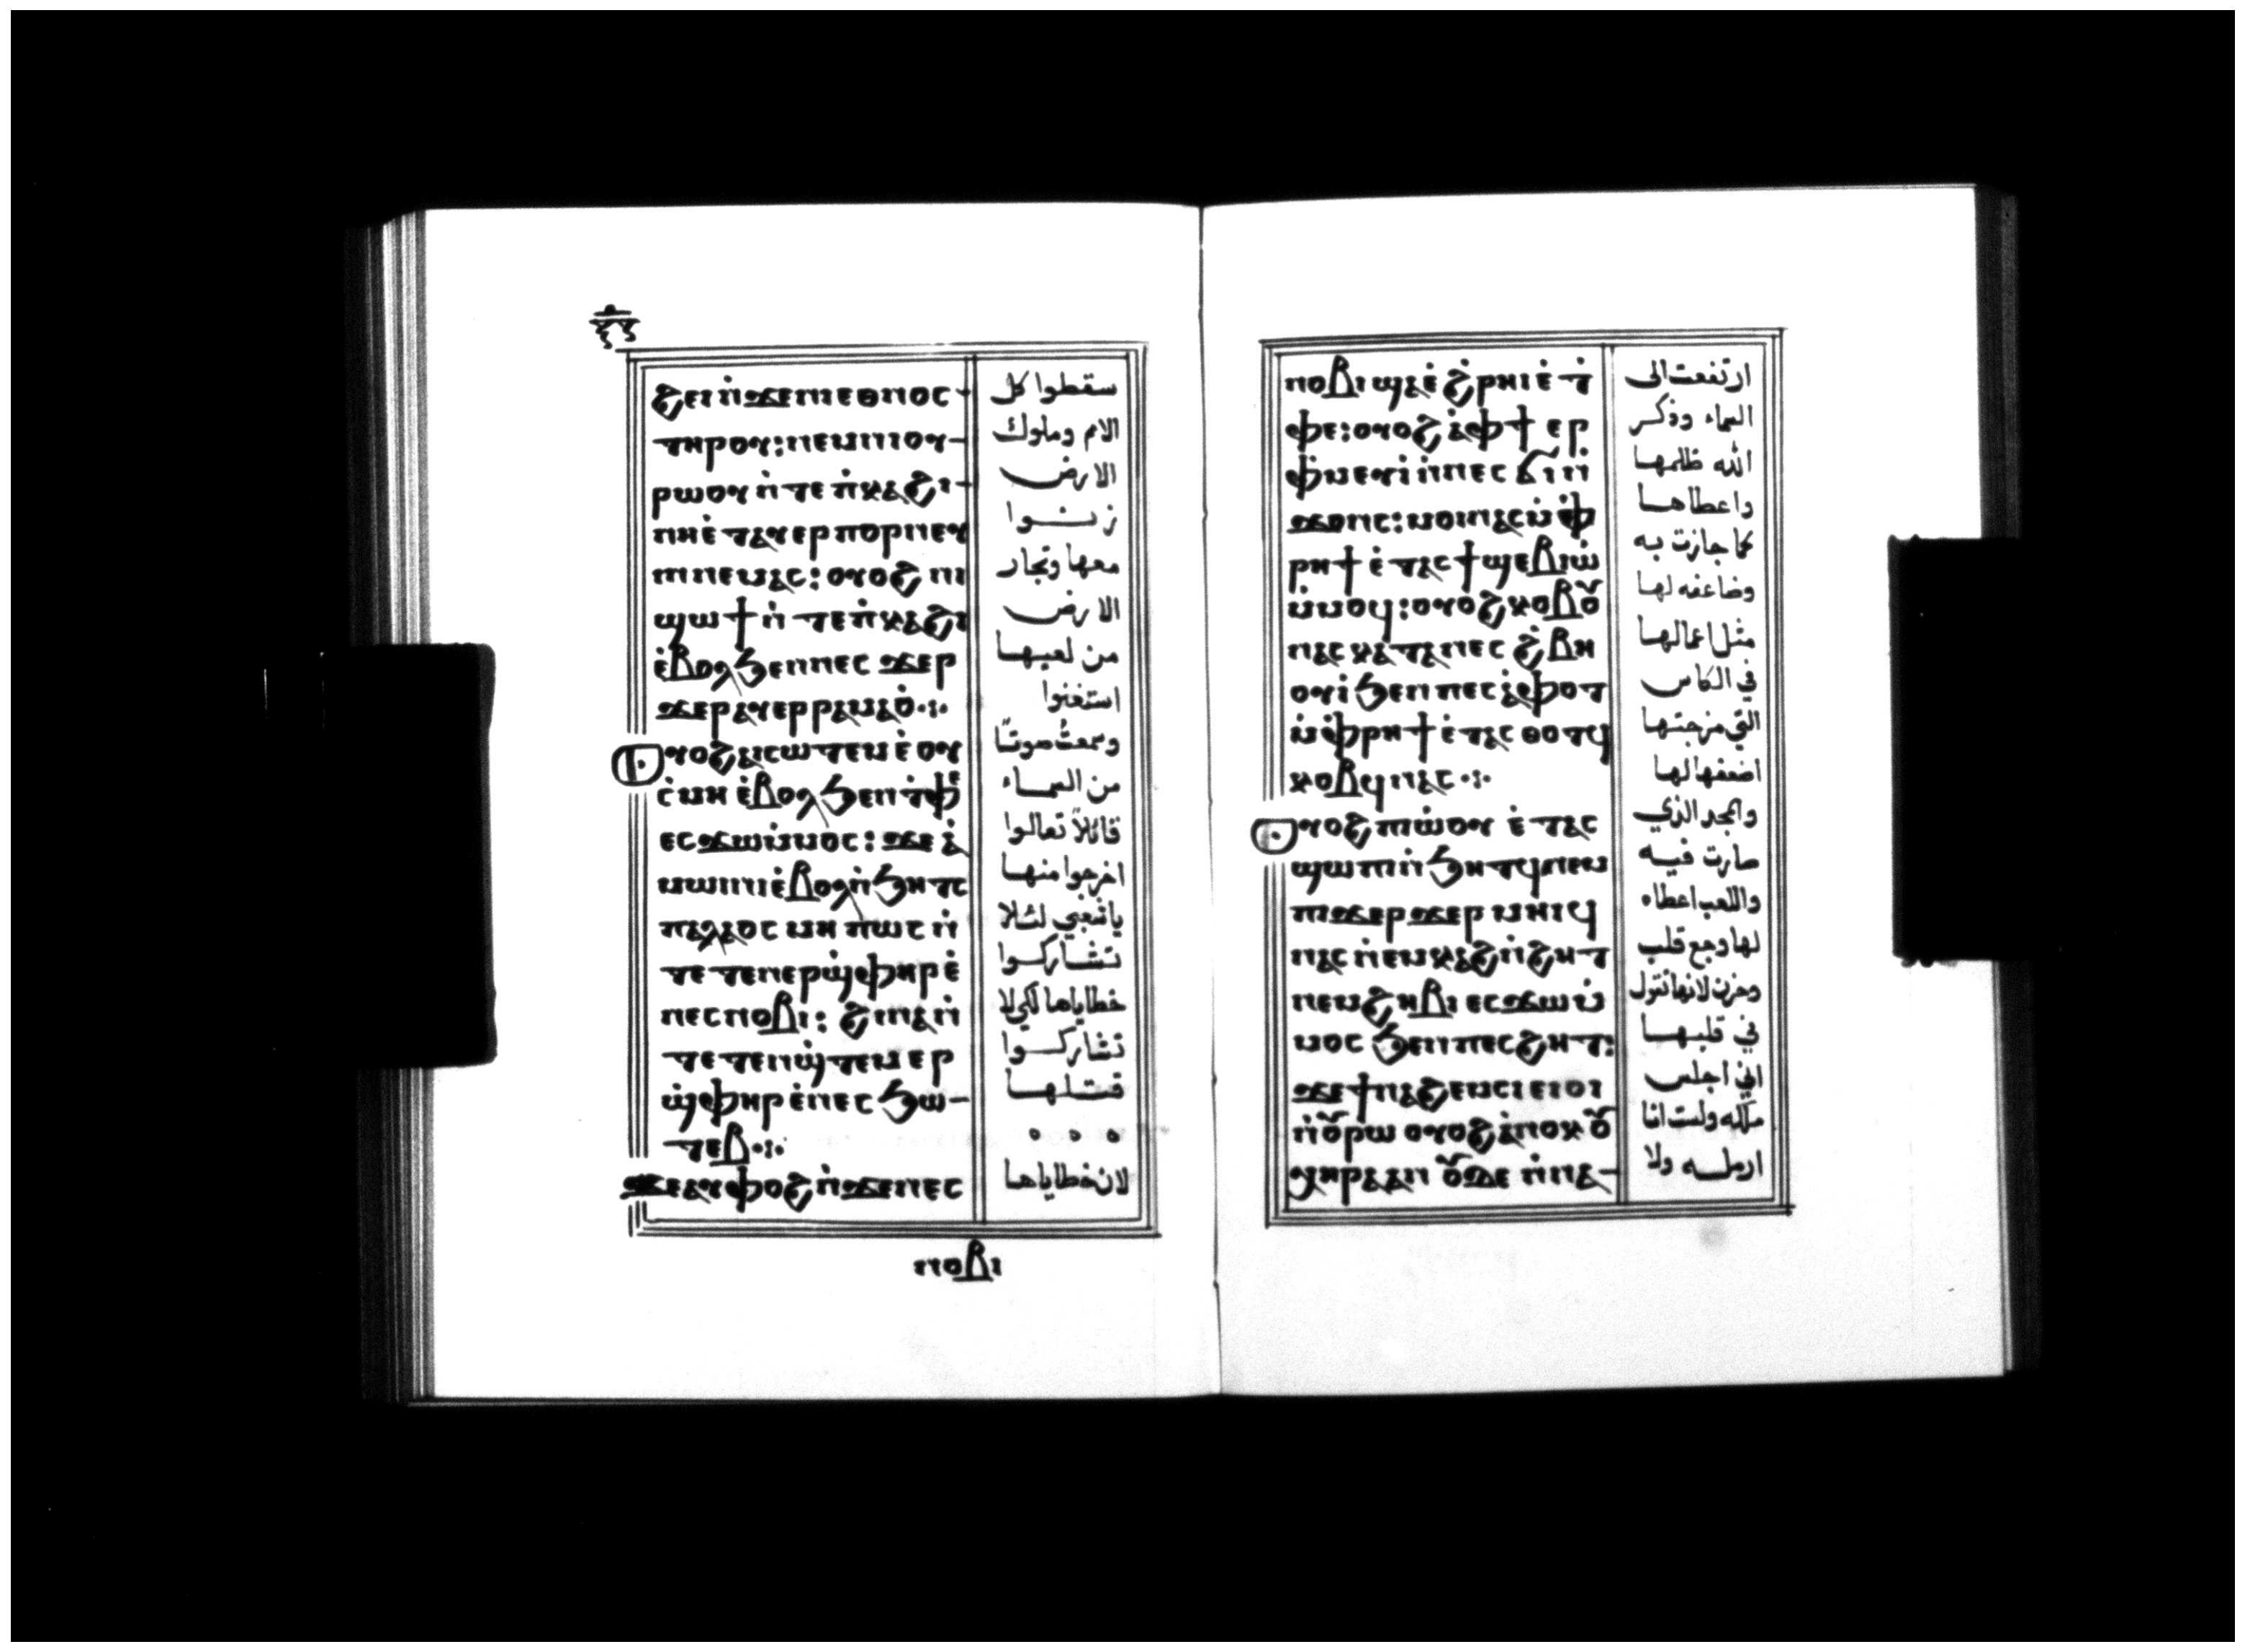 ϩⲉⲓ ⲛ̇ϫⲉ ⲛⲓⲉⲑⲛⲟⲥ-
ⲧⲏⲣⲟⲩ: ⲛⲉⲙ ⲛⲓⲟⲩ-
ⲣⲱⲟⲩ ⲛ̇ⲧⲉ ⲡ̇ⲕⲁϩⲓ-
ⲛⲏ ⲉ̇ⲧⲁⲩⲉⲣⲡⲟⲣⲛⲉⲩ
ⲓⲛ ⲛⲉⲙⲁⲥ: ⲟⲩⲟϩ ⲛⲓ
ϣⲱϯ ⲛ̇ⲧⲉ ⲡ̇ⲕⲁϩⲓ
ⲉ̇ⲃⲟⲗϧⲉⲛ ⲡⲉⲥ ϫⲉⲣ
ϫⲉⲣ ⲁⲩⲉⲣⲣⲁⲙⲁⲟ̇ ⁘
ⲟⲩⲟϩ ⲁⲓⲥⲱⲧⲉⲙ ⲉ̇ⲟⲩ
ⲥ̇ⲙⲏ ⲉ̇ⲃⲟⲗϧⲉⲛ ⲧ̇ⲫⲉ
ⲉⲥϫⲱ ⲙ̇ⲙⲟⲥ: ϫⲉ ⲁ̇
ⲙⲱⲓⲛⲓ ⲉ̇ⲃⲟⲗ ⲛ̇ϧⲏⲧⲥ
ⲡⲁⲗⲁⲟⲥ ⲙⲏⲡⲱⲥ ⲛ̇
ⲧⲉⲧⲉⲛⲉⲣϣ̇ⲫⲏⲣ ⲉ̇
ⲛⲉⲥⲛⲟⲃⲓ: ϩⲓⲛⲁ ⲛ̇
ⲧⲉⲧⲉⲛϣ̇ⲧⲉⲙⲉⲣ
ϣ̇ⲫⲏⲣ ⲉ̇ⲛⲉⲥϧⲱ-
ⲧⲉⲃ ⁘
ϫⲉ ⲁⲩⲫⲟϩ ⲛ̇ϫⲉ ⲛⲉⲥ
ⲛⲟⲃⲓ
سقطوا كل
الامم وملوك
الارض
زنوا
معها وتجار
الارض
من لعبها
استغنوا
وسمعت صوتًا
من السماء
قائلاً تعالوا
اخرجوا منها
ياشعبي لئلا
تشاركوا
خطاياها لكي لا
تشاركوا
قتلها
لان خطاياها
ⲛⲟⲃⲓ ϣⲁ ⲉ̇ϩ̇ⲣⲏⲓ ⲉ̇ⲧ̇
ⲫⲉ: ⲟⲩⲟϩ ⲁ̇ ⲫϯ ⲉⲣ
ⲫ̇ⲙⲉⲩⲓ̇ ⲛ̇ⲛⲉⲥ ϭⲓⲛ̇
ϫⲟⲛⲥ: ⲙⲟⲓ ⲛⲁⲥ ⲙ̇ⲫ̇
ⲣⲏϯ ⲉ̇ⲧⲁⲥϯϣⲉⲃⲓⲱ̇
ⲙ̇ⲙⲟϥ: ⲟⲩⲟϩ ⲕⲟⲃⲟ̅
ⲛⲁⲥ ⲕⲁⲧⲁ ⲛⲉⲥ ϩ̇ⲃⲏ
ⲟⲩⲓ̇ ϧⲉⲛ ⲡⲉⲥⲁ̇ⲫⲟⲧ
ⲙ̇ⲫ̇ⲣⲏϯ ⲉ̇ⲧⲁⲥⲑⲟⲧϥ
ⲕⲟⲃϥ ⲛⲁⲥ ⁘
ⲟⲩⲟϩ ⲡⲓⲱ̇ⲟⲩ ⲉ̇ⲧⲁⲥ
ϣⲱⲡⲓ ⲛ̇ϧⲏⲧϥ ⲛⲉⲙ
ⲡⲓϫⲉⲣϫⲉⲣ ⲙⲏⲓϥ
ⲛⲁⲥ ⲛ̇ⲉⲙⲕⲁϩ ⲛ̇ϩⲏⲧ
ⲛⲉⲙ ϩⲏⲃⲓ ⲉⲥϫⲱ ⲙ̇
ⲙⲟⲥ ϧⲉⲛ ⲡⲉⲥϩⲏⲧ:
ϫⲉ ϯⲛⲁϩⲉⲙⲥⲓ ⲉⲓⲟⲓ
ⲛ̇ⲟⲩⲣⲱ ⲟⲩⲟϩ ⲁ̇ⲛⲟⲕ ⲟⲩ
ⲭⲏⲣⲁ ⲁⲛ ⲟⲩⲇⲉ ⲛ̇ⲛⲁ-
ارتفعت الى
السماء وذكر
الله ظلمها
واعطاها
كما جازت به
وضاعفه لها
مثل اعمالها
في الكاس
التي مزجتها
اضعفها لها
والمجد الذي
صارت فيه
واللعب اعطاه
لها وجع قلب
وحزن لانها تقول
في قلبها
اني اجلس
ملكه ولست انا
ارمله ولا